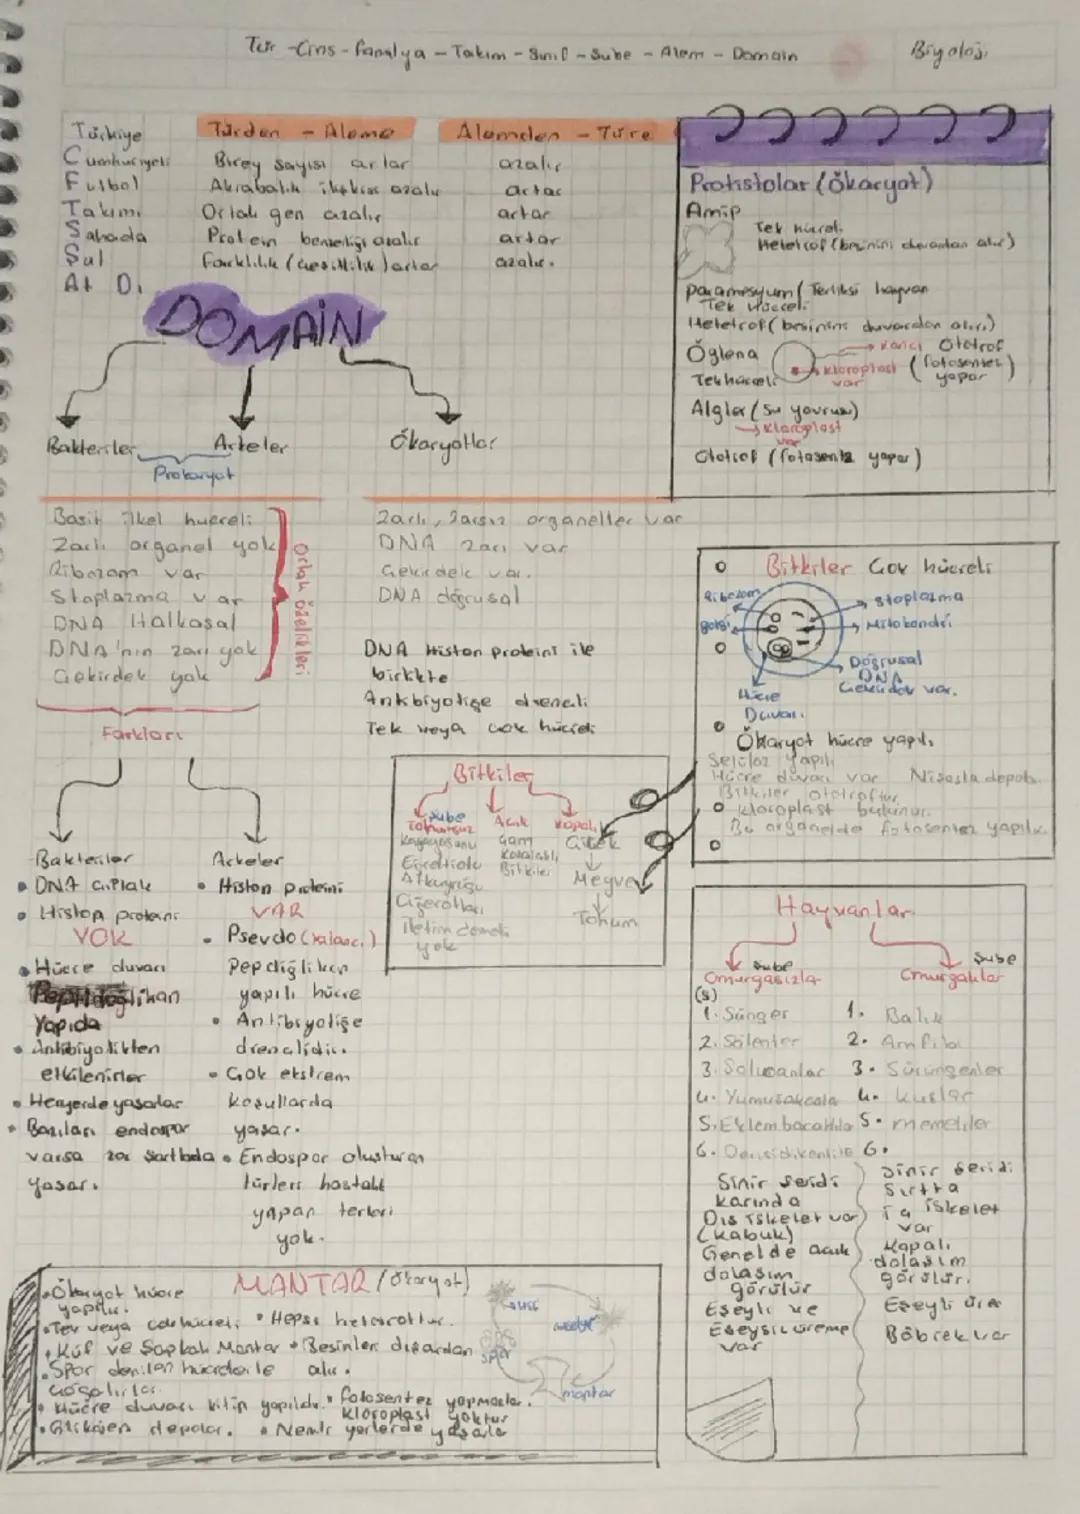 Tür - Cins - familya - Takım - Sınıf - Şube - Alem - Domain
Biyoloji
Türkiye
Cumhuriyeti
Futbol
Takımı
Sahada
Şul
At Dı
Türden - Aleme
Birey sayısı artar
Akrabalık ilişkisi azalır
Ortak gen azalır
Protein benzerliği azalır
Farklılık (çeşitlilik) artar
Alemden - Türe
azalır
artar
artar
artar
azalır.
DOMAİN
Bakteriler
Arkeler
Ökaryotlar
Prokaryot
Basit ilkel hücreli
Zarlı organel yok
Ribozom var
Stoplazma var
DNA Halkasal
DNA'nın zarı yok
Çekirdek yok
Ortak özelikleri
Farkları
Bakteriler
• DNA çıplak
• Histon proteini
YOK
• Hücre duvarı
Peptidoglikan
Yapıda
• Antibiyotikten
etkilenirler
• Heryerde yaşarlar
• Bazıları endospor
varsa zor şartlada
yaşar.
Arkeler
• Histon proteini
VAR
• Psevdo (yalancı)
Pepdiglikan
yapılı hücre
• Antibiyotiğe
drençlidir.
• Çok ekstrem
koşullarda
yaşar.
• Endospor oluşturan
türleri hastalık
yapan türleri
yok.
Zarlı, Zarsız organeller var
DNA zarı var
Çekirdek var.
DNA doğrusal
DNA Histon proteini ile
birlikte
Antibiyotiğe drençli
Tek veya çok hücreli
Protistalar (Ökaryot)
Amip
Tek hücreli
Heletrof (besinini dışarıdan alır)
paramesyum (Terliksi hayvan
Tek hücreli
Heletrof (besinini duvardan alır.)
Öglena
Tek hücreli
→ kamçı
→ kloroplast
var
Ototrof
(fotosentez
yapar)
Algler (Su yosunu)
→ kloroplast
var
Ototrof (fotosentez yapar)
Bitkiler Çok hücreli
Ribozom
golgi
stoplazma
Mitokondri
Doğrusal
DNA
Çekirdek var.
Hücre
Duvarı
Ökaryot hücre yapılı
Selüloz yapılı
Hücre duvarı var
Nişasta depolar.
Bitkiler ototroftur
kloroplast bulunur.
Bu organelde fotosentez yapılır.
Bitkiler
Şube
Tohumsuz
Karayosunu
Eğreltiotu
Atkuyruğu
Ciğerotları
İletim demeti
yok
Açık
Çam
Kozalaklı
Bitkiler
Kapalı
Çiçek
Meyve
Tohum
Hayvanlar
Şube
Omurgasızla
(s)
1. Sünger
2. Sölenter
3. Solucanlar
4. Yumuşakçala
5. Eklembacaklıla
6. Derisidikenlile
Sinir şeridi
karında
Dış iskelet var
(kabuk)
Genelde açık
dolaşım
görülür
Eşeyli ve
Eşeysiz üreme
var
Şube
Omurgalılar
1. Balık
2. Amfibi
3. Sürüngenler
4. kuşlar
5. memeliler
6.
Sinir şeridi
Sırtta
iç iskelet
var
Kapalı
dolaşım
görülür.
Eşeyli üre
Böbrek var
MANTAR (Ökaryot)
• Ökaryot hücre
yapılır.
• Tek veya çok hücreli
• Küf ve Şapkalı Mantar
• Spor denilen hücreler ile
çoğalırlar.
• Hücre duvarı kitin yapılıdı.
• Glikojen depolar.
• Hepsi heterotrof.
• Besinleri dışardan
alır.
• fotosentez yapmazlar.
kloroplast yoktur
• Nemli yerlerde yaşarlar
spor
mantar